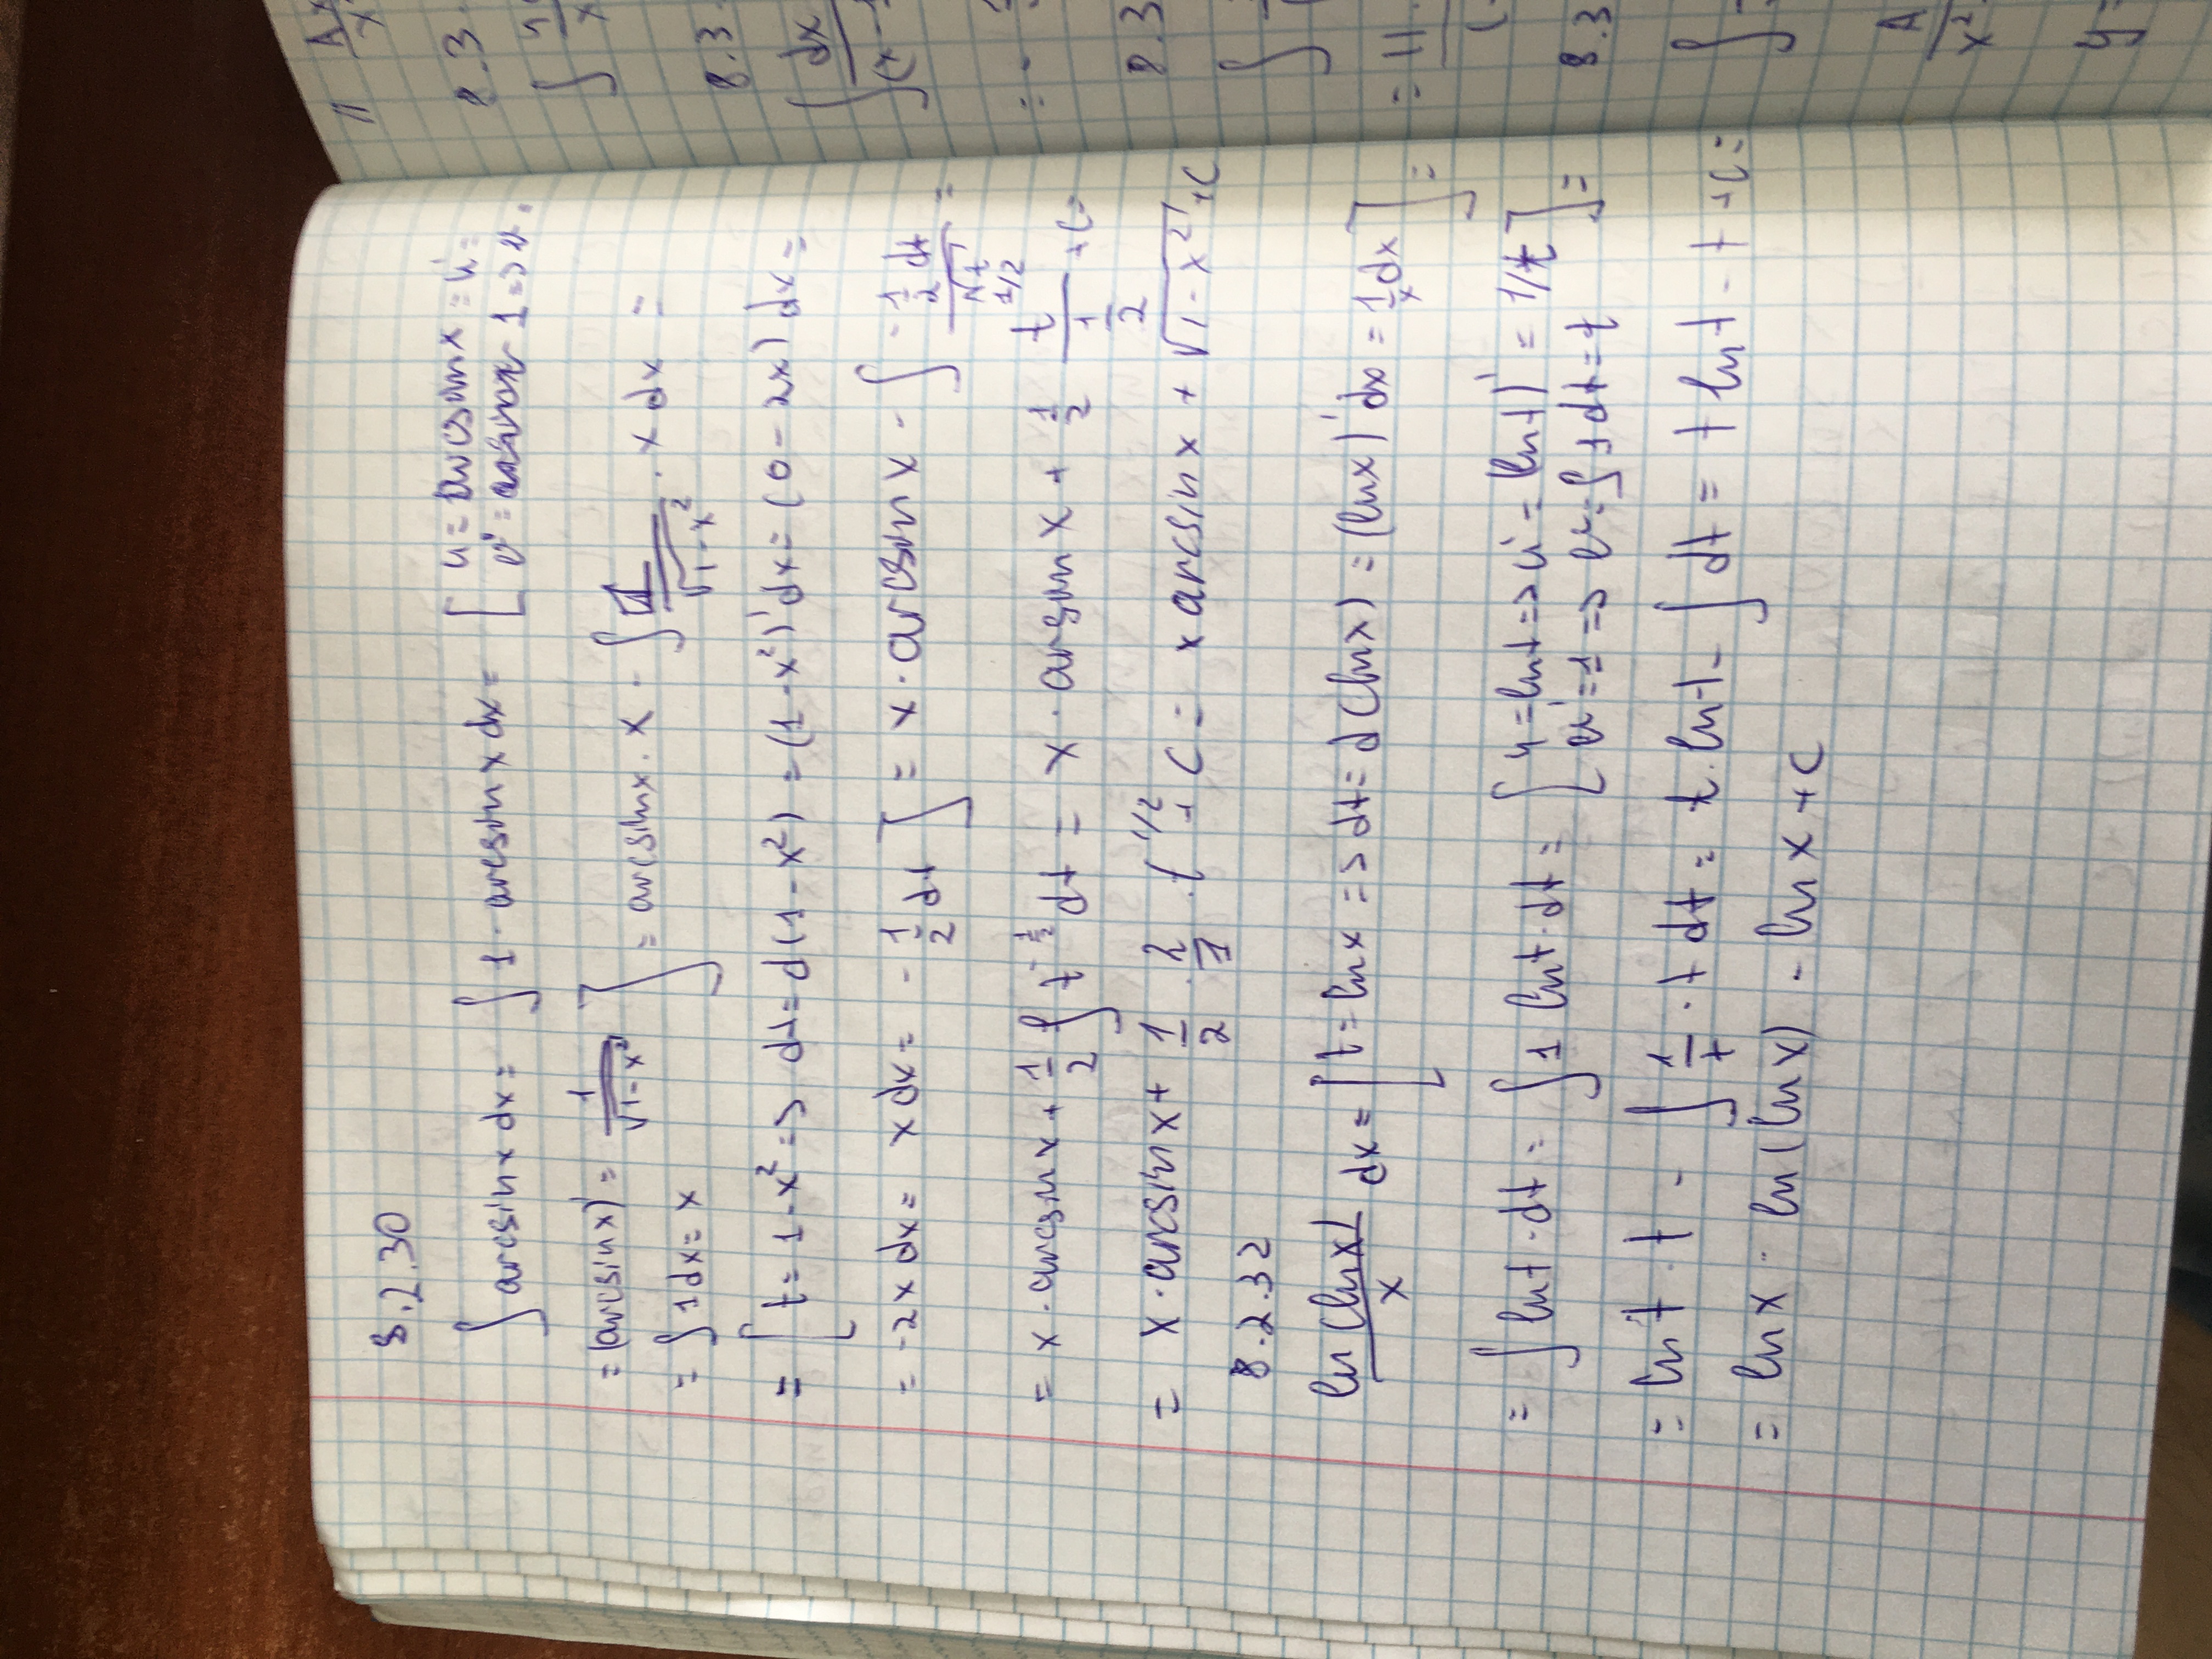 8.2.30
∫ arcsinx dx = ∫ 1 · arcsinx dx = [ u = arcsinx = u' =
v' = 1 => v =
= (arcsinx)' = 1/√(1-x²)
= ∫ 1dx = x ] = arcsinx · x - ∫ 1/√(1-x²) · x dx =
= [ t = 1-x² => dt = d(1-x²) = (1-x²)'dx = (0-2x)dx =
= -2x dx = x dx = -1/2 dt ] = x · arcsinx - ∫ (-1/2 dt)/√t =
= x · arcsinx + 1/2 ∫ t^(-1/2) dt = x · arsinx + 1/2 t^(1/2)/(1/2) + C =
= x · arcsinx + 1/2 · 2/1 · t^(1/2) + C = x arcsinx + √(1-x²) + C
8.2.32
ln(lnx)/x dx = [ t = lnx => dt = d(lnx) = (lnx)'dx = 1/x dx ] =
= ∫ lnt · dt = ∫ 1 lnt · dt = [ u = lnt => u' = (lnt)' = 1/t
v' = 1 => v = ∫ 1dt = t ] =
= lnt · t - ∫ 1/t · t dt = t · lnt - ∫ dt = t lnt - t + C =
= lnx · ln(lnx) - lnx + C
8.3
8.3
dx
8.3
= 11
8.3
A
x²
y =